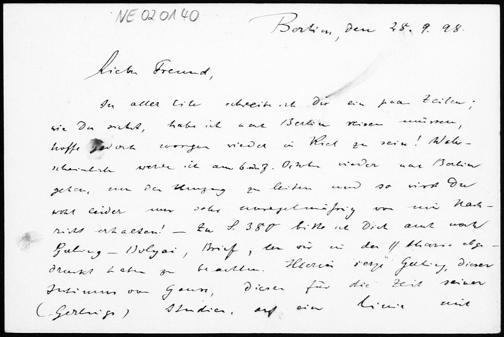 NE 020140
Berlin, den 28. 9. 98.
Lieber Freund,
In aller Eile schreibe ich Dir ein paar Zeilen;
wie Du siehst, habe ich nach Berlin reisen müssen,
hoffe jedoch morgen wieder in Kiel zu sein! Wahr-
scheinlich werde ich am Oktober wieder nach Berlin
gehen, um den Umzug zu leiten und so wirst Du
wohl leider nur sehr unregelmäßig von mir Nach-
richt erhalten! — Zu S. 380 bitte ich Dich auch noch
Gerling – Bolyai, Brief, den wir in der abge-
druckt haben zu beachten. Hierin Gerling, dieser
Intimus von Gauss, dieser für die Zeit seiner
(Gerlings) Studien, auf eine Linie mit